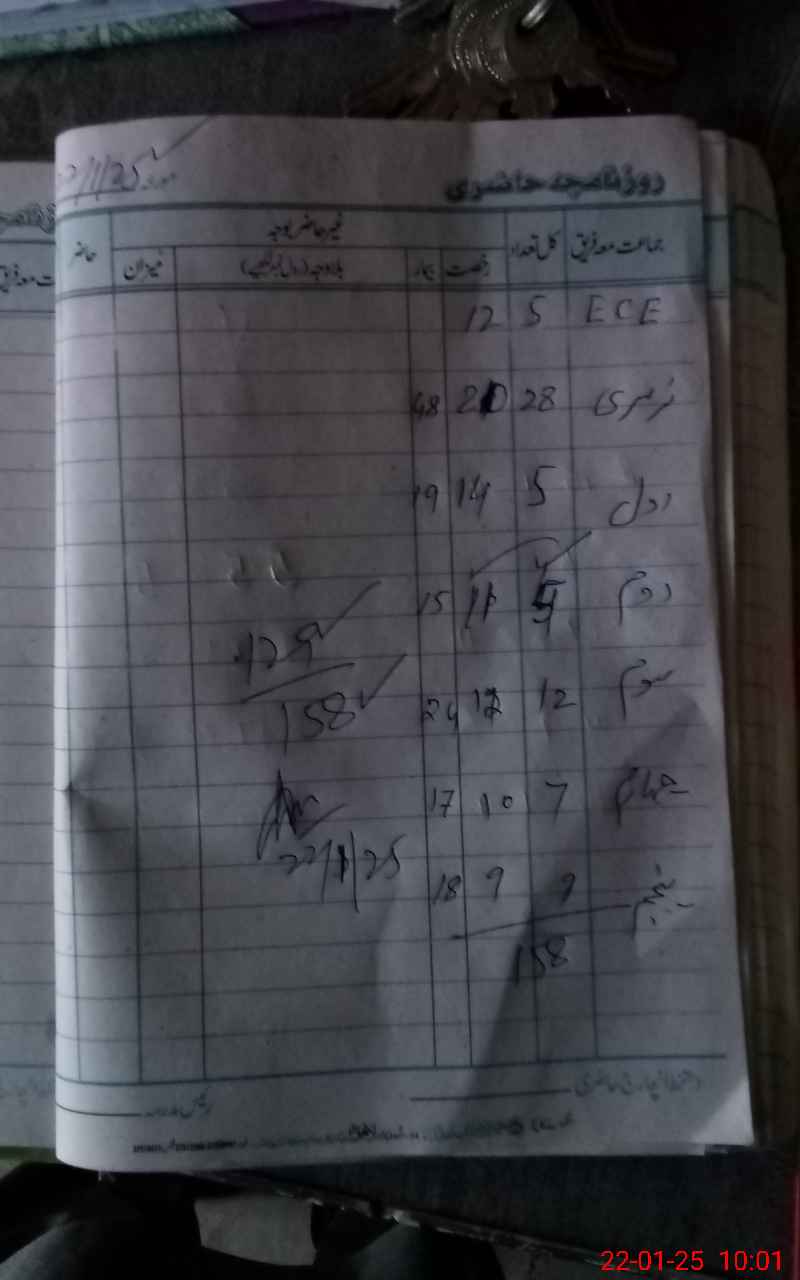 روزنامچہ حاضری
مورخہ 22/1/25
جماعت معہ فریق کل تعداد غیر حاضر بوجہ حاضر
رخصت بیمار بلاوجہ میزان
ECE 5 12
نرسری 28 20 48
اول 5 14 19
دوم 4 11 15
129
سوم 12 12 24
158
چہارم 7 10 17
22/1/25
پنجم 9 9 18
158
دستخط انچارج حاضری
رئیس مدرسہ
22-01-25 10:01